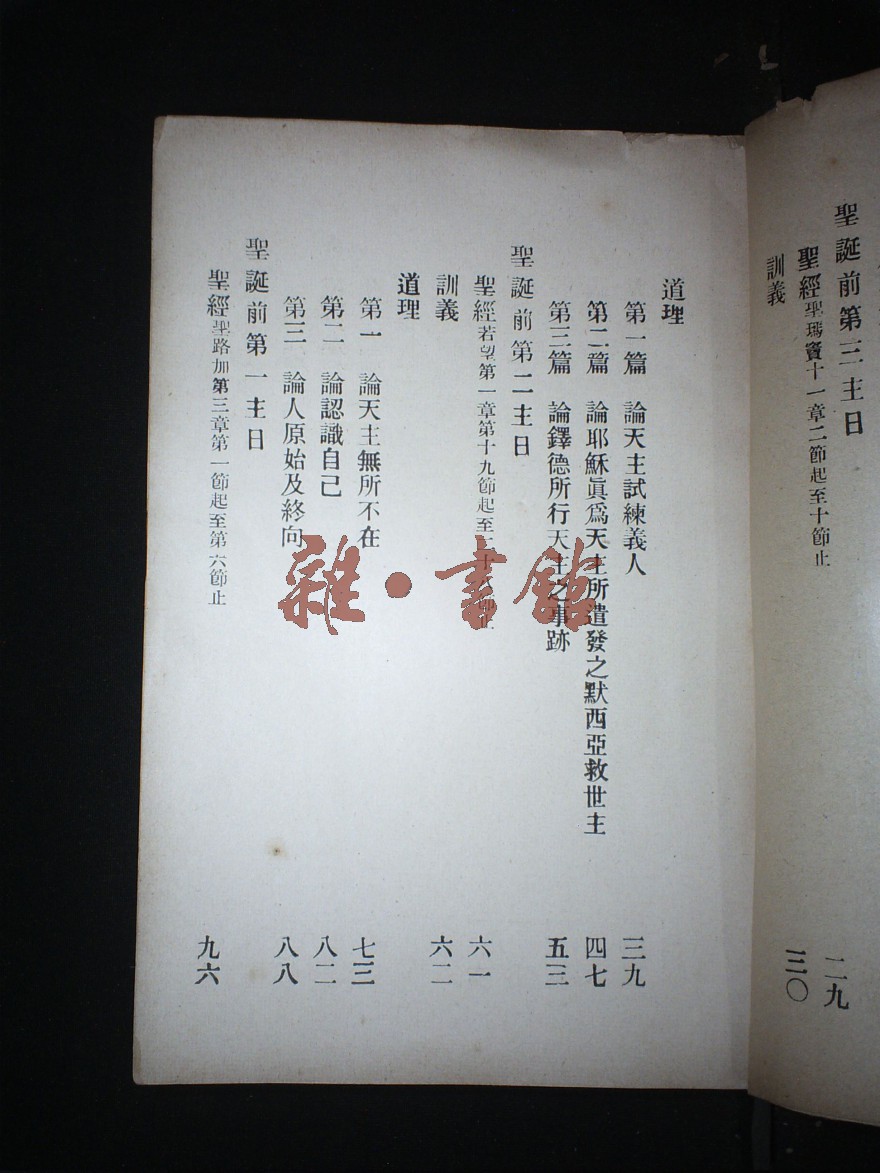 聖誕前第三主日
聖經聖瑪竇十一章二節起至十節止 二九
訓義 三〇
道理
第一篇 論天主試練義人 三九
第二篇 論耶穌眞爲天主所遣發之默西亞救世主 四七
第三篇 論鐸德所行天主之事跡 五三
聖誕前第二主日
聖經若望第一章第十九節起至二十八節止 六一
訓義 六二
道理
第一 論天主無所不在 七三
第二 論認識自己 八二
第三 論人原始及終向 八八
聖誕前第一主日
聖經聖路加第三章第一節起至第六節止 九六
雜·書館